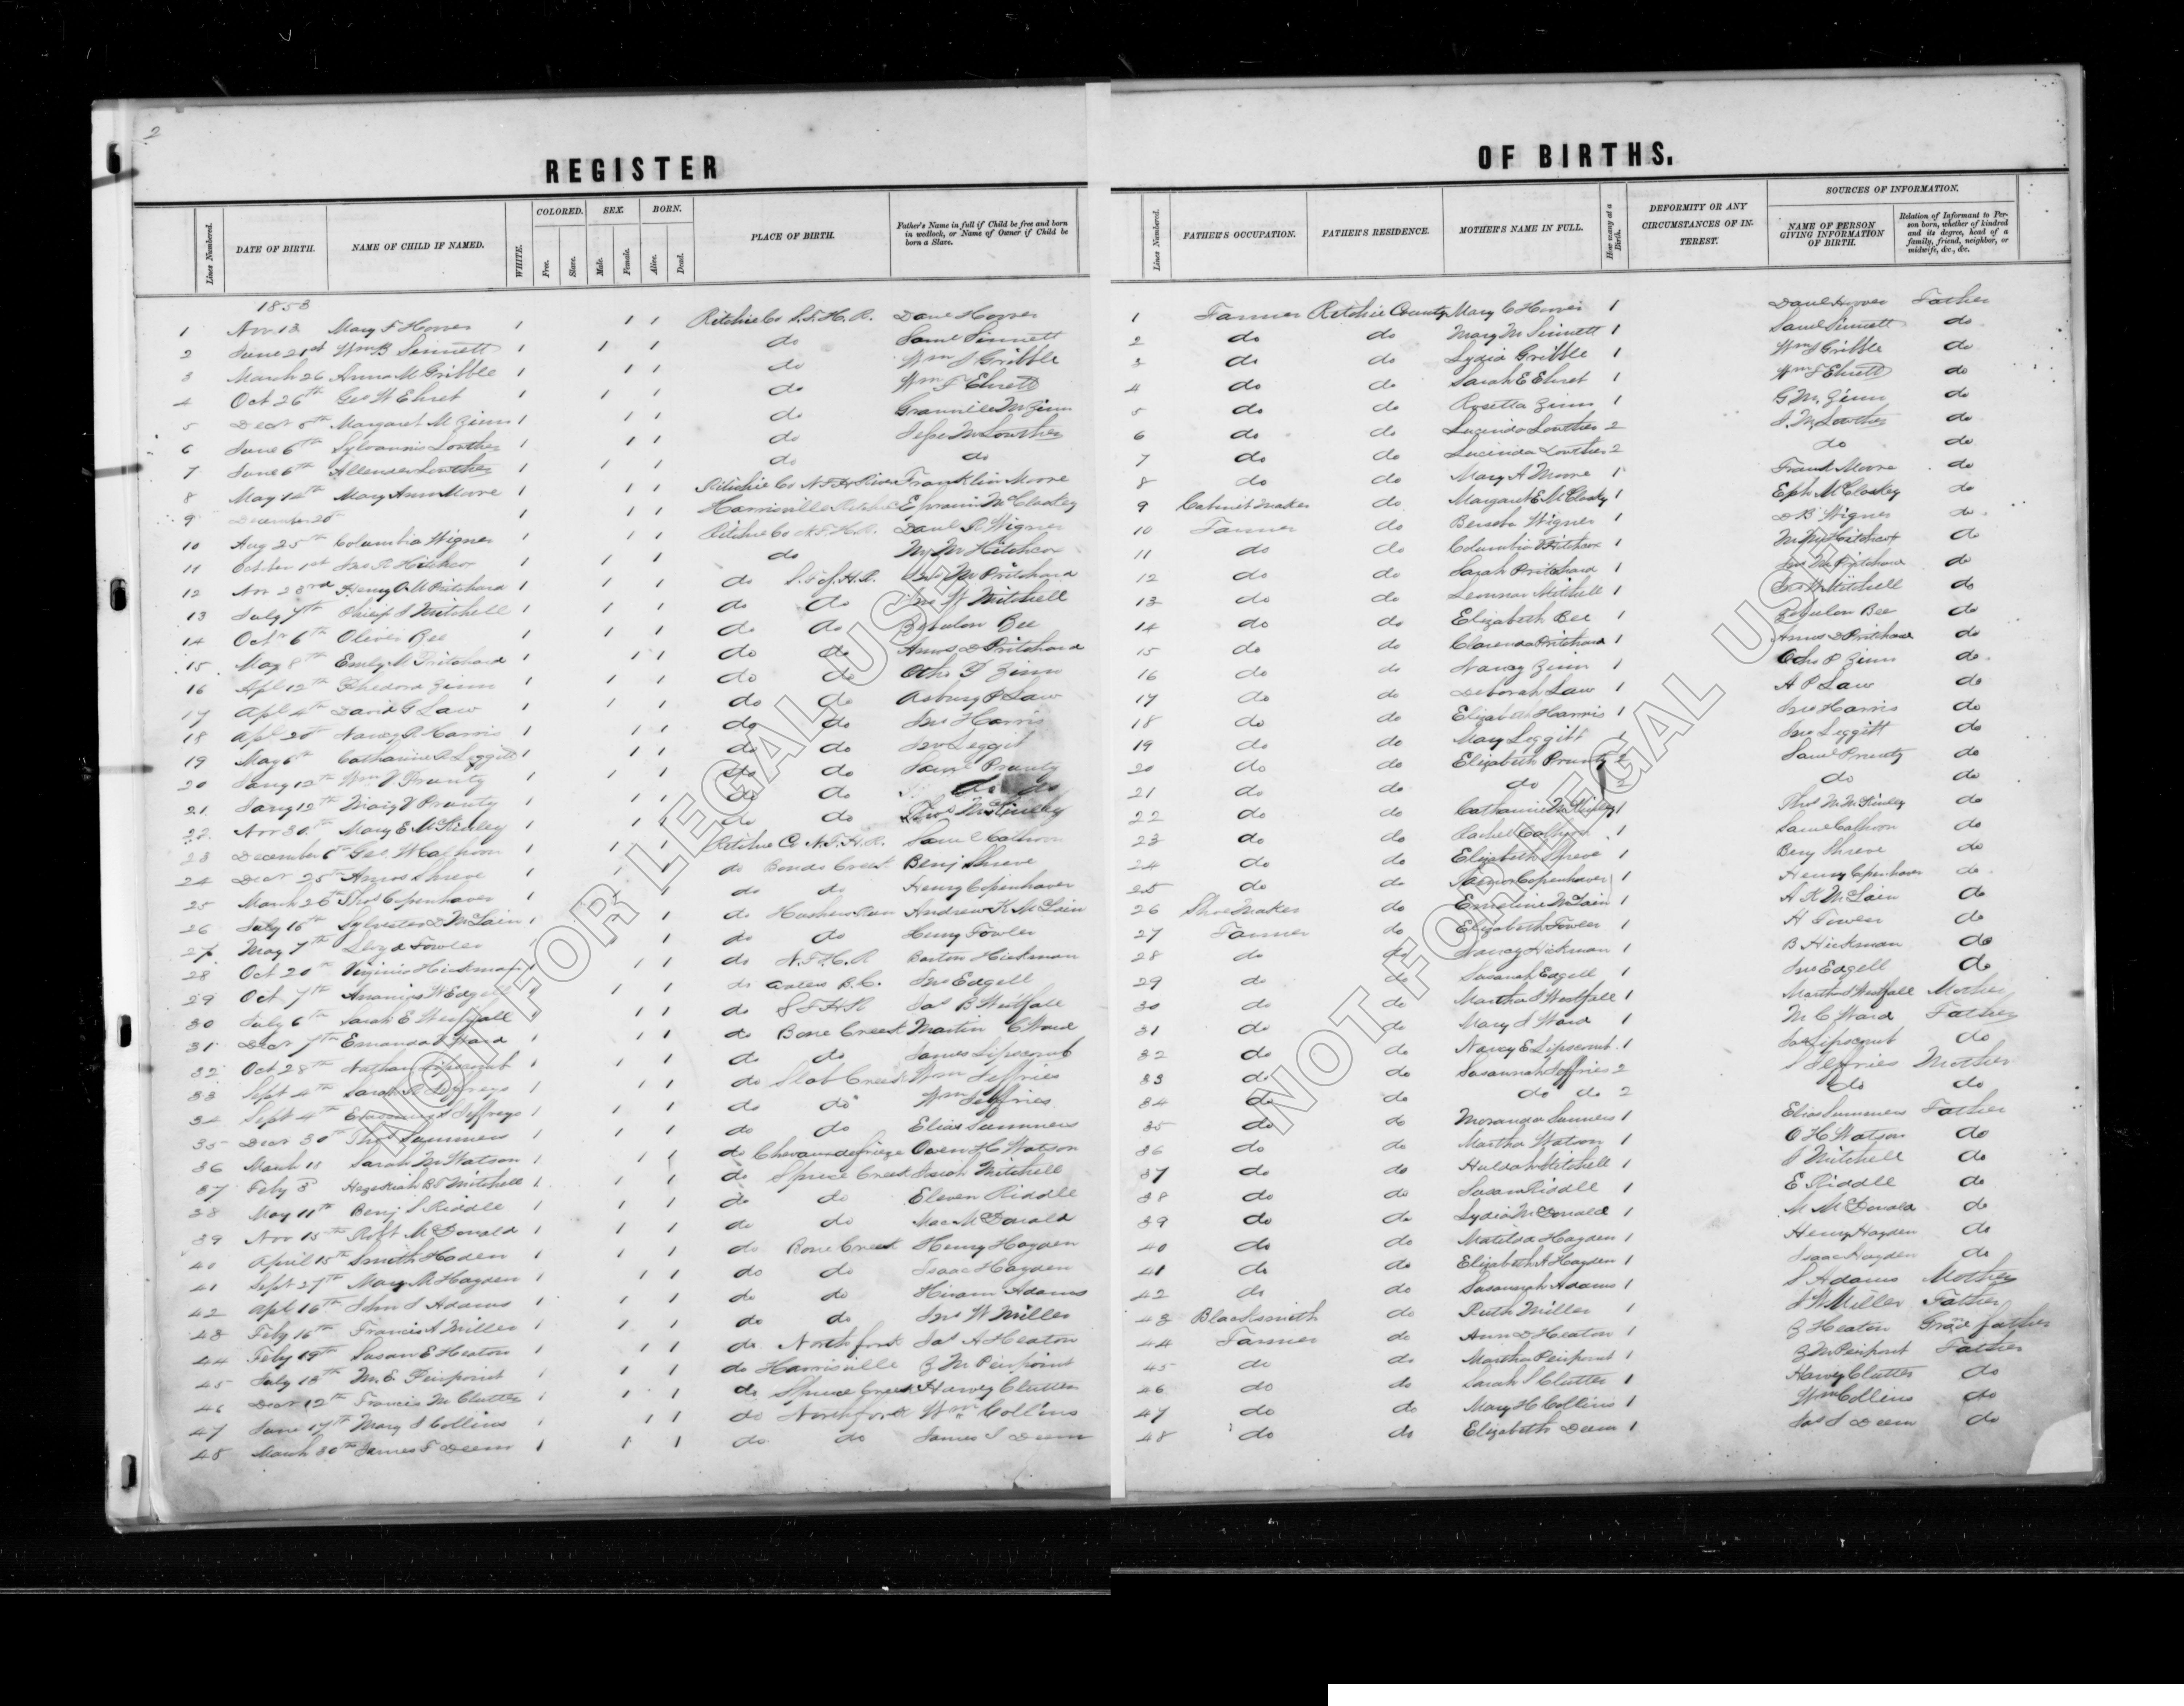 2
REGISTER OF BIRTHS.
Lines Numbered. DATE OF BIRTH. NAME OF CHILD IF NAMED. WHITE. COLORED. Free. Slave. SEX. Male. Female. BORN. Alive. Dead. PLACE OF BIRTH. Father's Name in full if Child be free and born in wedlock, or Name of Owner if Child be born a Slave. Lines Numbered. FATHER'S OCCUPATION. FATHER'S RESIDENCE. MOTHER'S NAME IN FULL. How many at a Birth. DEFORMITY OR ANY CIRCUMSTANCES OF INTEREST. SOURCES OF INFORMATION. NAME OF PERSON GIVING INFORMATION OF BIRTH. Relation of Informant to Person born, whether of kindred and its degree, head of a family, friend, neighbor, or midwife, &c., &c.
1853
1 Nov 13 Mary F Hoover 1 1 1 Ritchie Co S.F.H.R. Danl Hoover 1 Farmer Ritchie County Mary C Hoover 1 Danl Hoover Father
2 June 21st Wm B Sinnett 1 1 1 do Saml Sinnett 2 do do Mary M Sinnett 1 Saml Sinnett do
3 March 26 Anna M Gribble 1 1 1 do Wm J Gribble 3 do do Lydia Gribble 1 Wm J Gribble do
4 Oct 26th Geo W Ehret 1 1 1 do Wm F Ehrett 4 do do Sarah E Ehret 1 Wm F Ehrett do
5 Decr 8th Margaret M Zinn 1 1 1 do Granville M Zinn 5 do do Rosetta Zinn 1 G M. Zinn do
6 June 6th Sylvannis Lowther 1 1 1 do Jesse M Lowther 6 do do Lucinda Lowther 2 J. M. Lowther do
7 June 6th Allender Lowther 1 1 1 do do 7 do do Lucinda Lowther 2 do do
8 May 14th Mary Ann Moore 1 1 1 Ritchie Co N.F.H River Franklin Moore 8 do do Mary A Moore 1 Frank Moore do
9 December 20th 1 1 1 Harrisville Ritchie Ephraim McClaskey 9 Cabinet Maker do Margaret E McClasky 1 Eph McClaskey do
10 Aug 25th Columbia Wigner 1 1 1 Ritchie Co N.F.H.R. Danl R Wigner 10 Farmer do Wigner 1 D B Wigner do
11 October 1st Jno R Hitchcox 1 1 1 do M Hitchcox 11 do do Columbia Hitchcox 1 Hitchcox do
12 Nov 23rd Henry A M Pritchard 1 1 1 do S.F.of.H.R. Jno M Pritchard 12 do do Sarah Pritchard 1 Jno M Pritchard do
13 July 7th Philip S Mitchell 1 1 1 do do Jno W Mitchell 13 do do Mitchell 1 Mitchell do
14 Octr 6th Oliver Bee 1 1 1 do do Zebulon Bee 14 do do Elizabeth Bee 1 Zebulon Bee do
15 May 8th Emily M Pritchard 1 1 1 do do Amos D Pritchard 15 do do Clarenda Pritchard 1 Amos D Pritchard do
16 Apl 12th Zinn 1 1 1 do do Otho P Zinn 16 do do Nancy Zinn 1 Otho P Zinn do
17 Apl 4th David G Law 1 1 1 do do Asbury P Law 17 do do Deborah Law 1 A P Law do
18 Apl 20th Nancy Harris 1 1 1 do do Jno Harris 18 do do Elizabeth Harris 1 Jno Harris do
19 May 6th Catharine R Leggitt 1 1 1 do do Jno Leggit 19 do do Mary Leggitt 1 Jno Liggitt do
20 Jany 12th Wm V Prunty 1 1 1 do do Saml Prunty 20 do do Elizabeth Prunty 2 Saml Prunty do
21 Jany 12th Mary V Prunty 1 1 1 do do do do 21 do do do 2 do do
22 Nov 30th Mary E McKinley 1 1 1 do do Thos McKinley 22 do do Catharine McKinley 1 Thos M McKinley do
23 December 6th Geo. W Calhoon 1 1 1 Ritchie Co N.F.H.R. Saml Calhoon 23 do do Rachel Calhoon 1 Saml Calhoon do
24 Decr 25th Amos Shreve 1 1 1 do Bonds Creek Benj Shreve 24 do do Elizabeth Shreve 1 Benj Shreve do
25 March 26th Thos Copenhaver 1 1 do do Henry Copenhaver 25 do do Copenhaver 1 Henry Copenhaver do
26 July 16th Sylvester D McLain 1 1 do Hushers Run Andrew K McLain 26 Shoe Maker do Emeline McLain 1 A K McLain do
27 May 7th Fowler 1 do do Henry Fowler 27 Farmer do Elizabeth Fowler 1 H Fowler do
28 Oct 20th Virginia Hickman 1 1 1 do N.F.H.R Barton Hickman 28 do do Nancy Hickman 1 B Hickman do
29 Oct 7th W Edgell 1 1 1 do B.C. Jno Edgell 29 do do Susanah Edgell 1 Jno Edgell do
30 July 6th Sarah E Westfall 1 1 1 do S F H R Jas B Westfall 30 do do Martha J Westfall 1 Martha J Westfall Mother
31 Decr 7th Emanda Ward 1 1 1 do Bone Creek Martin C Ward 31 do do Mary J Ward 1 M C Ward Father
32 Oct 28th Nathan Lipscomb 1 1 1 do do James Lipscomb 32 do do Nancy E Lipscomb 1 Jas Lipscomb do
33 Sept 4th Sarah Jeffreys 1 1 1 do Slab Creek Wm Jeffries 33 do do Susannah Jeffries 2 S Jeffries Mother
34 Sept 4th Jeffreys 1 1 1 do do Wm Jeffries 34 do do do do 2 do do
35 Decr 30th Thos Summers 1 1 1 do do Elias Summers 35 do do Summers 1 Elias Summers Father
36 March 18 Sarah M Watson 1 1 1 do Owen H Watson 36 do do Martha Watson 1 O H Watson do
37 Feby 3d Hezekiah B T Mitchell 1 1 1 do Spruce Creek Isiah Mitchell 37 do do Huldah Mitchell 1 I Mitchell do
38 May 11th Benj S Riddle 1 1 1 do do Eleven Riddle 38 do do Susan Riddle 1 E Riddle do
39 Nov 15th Robt McDonald 1 1 1 do do Mac McDonald 39 do do Lydia McDonald 1 M McDonald do
40 April 15th Smith Haden 1 1 1 do Bone Creek Henry Hayden 40 do do Matilda Hayden 1 Henry Hayden do
41 Sept 27th Mary M Hayden 1 1 1 do do Isaac Hayden 41 do do Elizabeth A Hayden 1 Isaac Hayden do
42 Apl 16th John S Adams 1 1 1 do do Hiram Adams 42 do do Susannah Adams 1 S Adams Mother
43 Feby 16th Francis A Miller 1 1 1 do do Jno W Miller 43 Blacksmith do Ruth Miller 1 J W Miller Father
44 Feby 19th Susan E Heaton 1 1 1 do North fork Jas A Heaton 44 Farmer do Ann D Heaton 1 Z Heaton Grand father
45 July 18th M. E Peirpoint 1 1 1 do Harrisville Z M Peirpoint 45 do do Martha Peirpoint 1 Z M Peirpoint Father
46 Decr 12th Francis M Clutter 1 1 1 do Spruce Creek Harvey Clutter 46 do do Sarah S Clutter 1 Harvey Clutter do
47 June 17th Mary J Collins 1 1 1 do North fork Wm Collins 47 do do Mary H Collins 1 Wm Collins do
48 March 30th James T Deem 1 1 1 do do James S Deem 48 do do Elizabeth Deem 1 Jas S Deem do
NOT FOR LEGAL USE
NOT FOR LEGAL USE